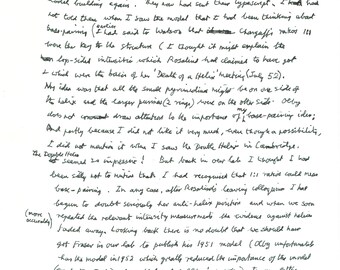 model building again. They now had sent them typescript. I had
not told them when I saw the model that I had been thinking about
base-pairing (I had said to Watson earlier that Chargaff's ratios 1:1
were the key to the structure (I thought it might explain the
top-sided intensities which Rosalind had claimed to have got
& which were the basis of her 'Death of a Helix' meeting (July 52).
My idea was that all the small pyrimidines might be on one side of
the helix and the larger purines (2 rings) were on the other side. Olby
does not draw attention to the importance of my base-pairing idea;
And partly because I did not like it very much, even though a possibility,
I did not mention it when I saw the Double Helix in Cambridge.
The Double Helix
seemed so impressive! But back in our lab I thought I had
been silly not to notice that I had recognised that 1:1 ratios could mean
base-pairing. In any case, after Rosalind's leaving colloquium I had
begun to doubt seriously her anti-helix position and when we soon
(more accurately)
repeated the relevant intensity measurements the evidence against helices
faded away. Looking back there is no doubt that we should have
got Fraser in our lab to publish his 1951 model (Olby unfortunately
has the model in 1952 which greatly reduced the importance of the model